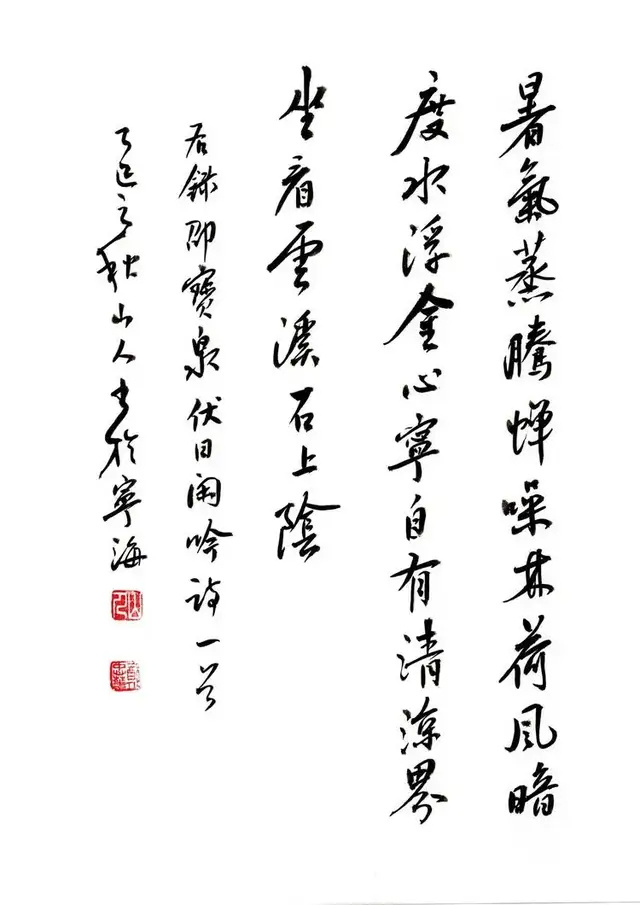 暑氣蒸騰蟬噪林荷風暗
度水浮金心寧自有清涼界
坐看雲溪石上陰
右錄邵寶泉伏日閑吟詩一首
乙巳之秋山人书於寧海
山人